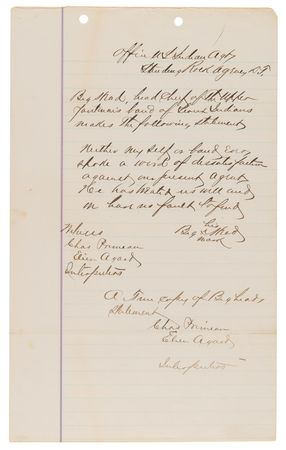 Office U.S. Indian Agty
Standing Rock Agency D.T.
Big Head, head Chief of the Upper
Yanktonais band of Sioux Indians
makes the following statement
Neither My self or band Ever
spoke a word of dissatisfaction
against our present agent
He has treated us well and
we have no fault to find
his
Big X Head
mark
Witness
Chas Primeau
Elien Agard
Interpreters
A True copy of Big Heads
Statement
Chas Primeau
Elien Agard
Interpreters